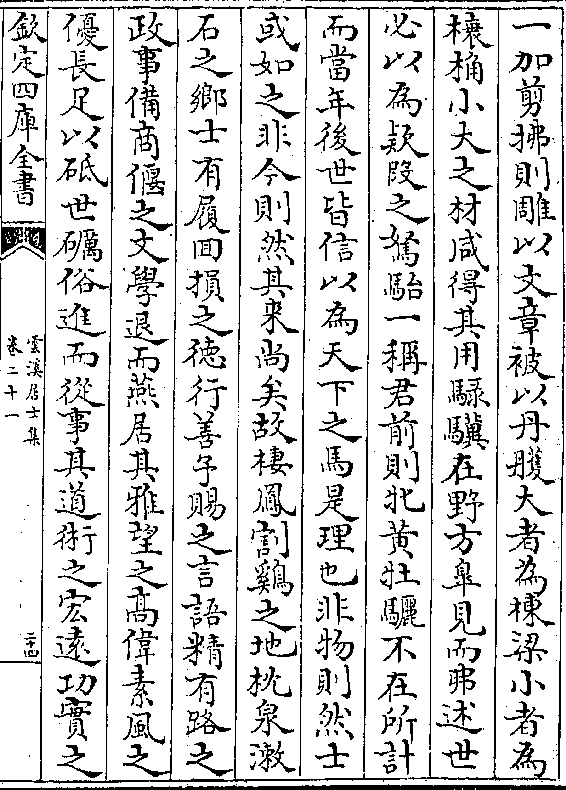 一加剪拂則雕以文章被以丹雘大者為棟梁小者為
榱桷小大之材咸得其用騄驥在野方臯見而弗述世
必以為款段之駑駘一稱君前則牝黃牡驪不在所計
而當年後世皆信以為天下之馬是理也非物則然士
或如之非今則然其來尚矣故棲鳳割鷄之地枕泉漱
石之鄉士有履回損之德行善予賜之言語精有路之
政事備商偃之文學退而燕居其雅望之高偉素風之
優長足以砥世礪俗進而從事其道術之宏遠功實之
欽定四庫全書
雲溪居士集
卷二十一
二十四